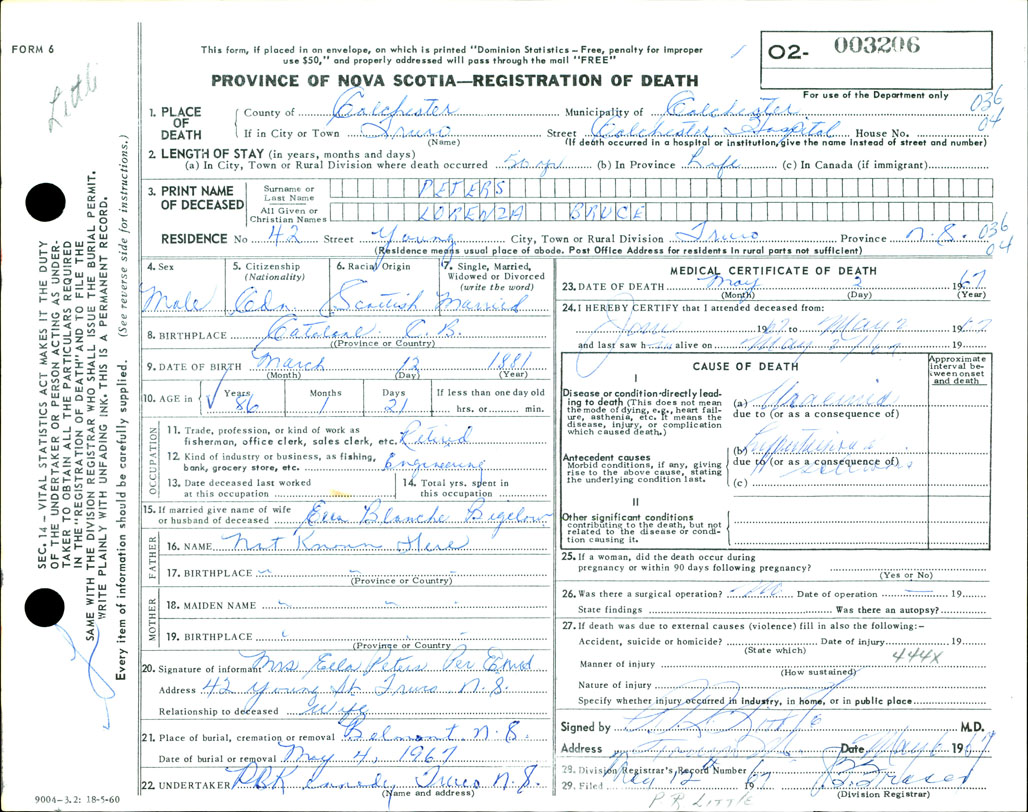 FORM 6
Little
This form, if placed in an envelope, on which is printed "Dominion Statistics – Free, penalty for improper
use $50," and properly addressed will pass through the mail "FREE"
PROVINCE OF NOVA SCOTIA—REGISTRATION OF DEATH
O2- 003206
For use of the Department only
036
04
1. PLACE OF DEATH
County of Colchester Municipality of Colchester
If in City or Town Truro Street Colchester Hospital House No.
(Name) (If death occurred in a hospital or institution, give the name instead of street and number)
2. LENGTH OF STAY (in years, months and days)
(a) In City, Town or Rural Division where death occurred (b) In Province Life (c) In Canada (if immigrant)
3. PRINT NAME OF DECEASED
Surname or Last Name PETERS
All Given or Christian Names LORENZA BRUCE
RESIDENCE No 42 Street Young City, Town or Rural Division Truro Province N.S. 036
04
(Residence means usual place of abode. Post Office Address for residents in rural parts not sufficient)
4. Sex Male
5. Citizenship (Nationality) Cdn
6. Racial Origin Scottish
7. Single, Married, Widowed or Divorced (write the word) Married
8. BIRTHPLACE Catalone C.B.
(Province or Country)
9. DATE OF BIRTH March 12 1881
(Month) (Day) (Year)
10. AGE in Years 86 Months 1 Days 21 If less than one day old hrs. or min.
OCCUPATION
11. Trade, profession, or kind of work as
fisherman, office clerk, sales clerk, etc. Retired
12. Kind of industry or business, as fishing,
bank, grocery store, etc. Engineering
13. Date deceased last worked
at this occupation
14. Total yrs. spent in
this occupation
15. If married give name of wife
or husband of deceased Ella Blanche Bigelow
FATHER
16. NAME Not Known Here
17. BIRTHPLACE
(Province or Country)
MOTHER
18. MAIDEN NAME
19. BIRTHPLACE
(Province or Country)
20. Signature of informant Mrs Ella Peters Per
Address 42 Young St. Truro N.S.
Relationship to deceased Wife
21. Place of burial, cremation or removal Belmont N.S.
Date of burial or removal May 4, 1967
22. UNDERTAKER Truro N.S.
(Name and address)
9004-3.2: 18-5-60
MEDICAL CERTIFICATE OF DEATH
23. DATE OF DEATH May 3 1967
(Month) (Day) (Year)
24. I HEREBY CERTIFY that I attended deceased from:
19 to May 2 19
and last saw h alive on May 2
CAUSE OF DEATH
Approximate interval between onset and death
I
Disease or condition directly leading to death (This does not mean the mode of dying, e.g., heart failure, asthenia, etc. It means the disease, injury, or complication which caused death.)
(a) Uraemia
due to (or as a consequence of)
Antecedent causes
Morbid conditions, if any, giving rise to the above cause, stating the underlying condition last.
(b)
due to (or as a consequence of)
(c)
II
Other significant conditions
contributing to the death, but not related to the disease or condition causing it.
25. If a woman, did the death occur during
pregnancy or within 90 days following pregnancy?
(Yes or No)
26. Was there a surgical operation? No Date of operation 19
State findings Was there an autopsy?
27. If death was due to external causes (violence) fill in also the following:–
Accident, suicide or homicide? Date of injury 19
(State which)
444X
Manner of injury
(How sustained)
Nature of injury
Specify whether injury occurred in industry, in home, or in public place
Signed by M.D.
Address Date May 6 1967
28. Division Registrar's Record Number
29. Filed May 12th 1967
(Division Registrar)
P R LITTLE
SEC. 14 – VITAL STATISTICS ACT MAKES IT THE DUTY
OF THE UNDERTAKER OR PERSON ACTING AS UNDER-
TAKER TO OBTAIN ALL THE PARTICULARS REQUIRED
IN THE "REGISTRATION OF DEATH" AND TO FILE THE
SAME WITH THE DIVISION REGISTRAR WHO SHALL ISSUE THE BURIAL PERMIT.
WRITE PLAINLY WITH UNFADING INK. THIS IS A PERMANENT RECORD.
Every item of information should be carefully supplied. (See reverse side for instructions.)